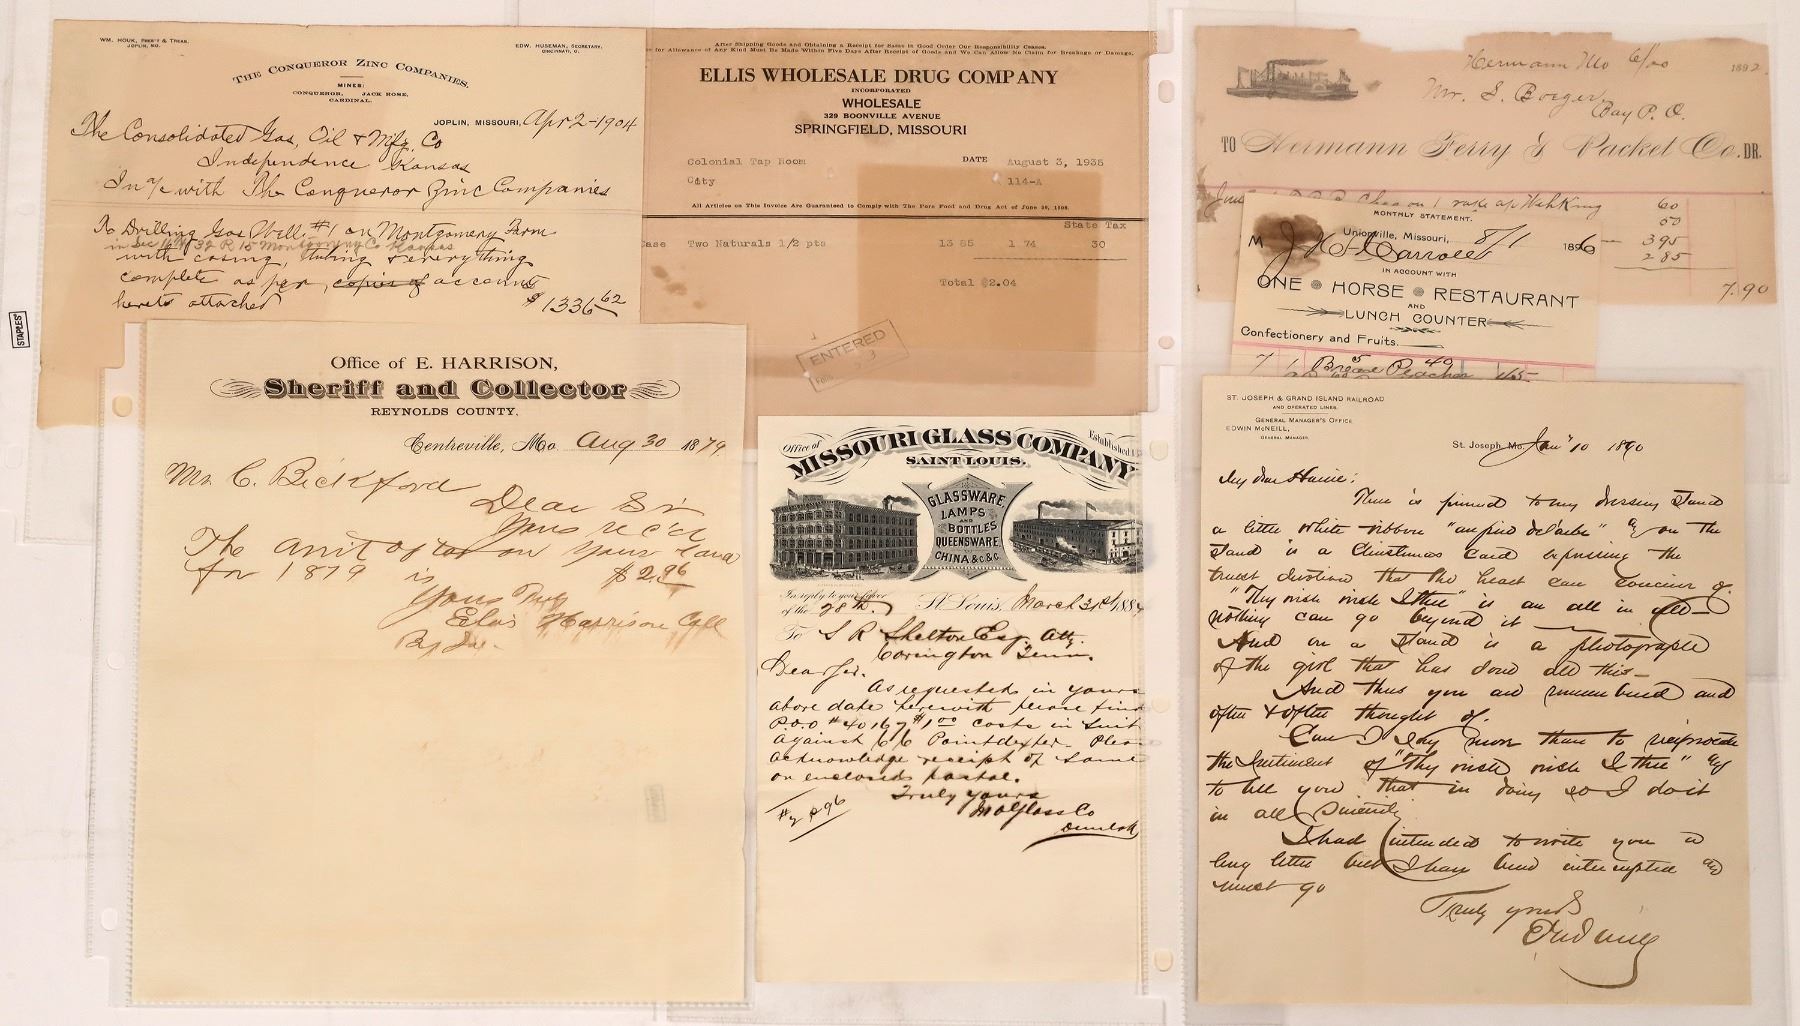 WM. HOUK, PRES'T & TREAS.
JOPLIN, MO.
EDW. HUSEMAN, SECRETARY,
CINCINNATI, O.
THE CONQUEROR ZINC COMPANIES.
MINES:
CONQUEROR, JACK ROSE,
CARDINAL.
JOPLIN, MISSOURI, Apr 2-1904
The Consolidated Gas, Oil & Mfg. Co
Independence Kansas
In a/c with The Conqueror Zinc Companies
To Drilling Gas Well #1 on Montgomery Farm
in Sec 16 32 R 15 Montgomery Co Kansas
with casing, tubing & everything
complete as per, copies of accounts
hereto attached $1336 62
After Shipping Goods and Obtaining a Receipt for Same in Good Order Our Responsibility Ceases.
for Allowance of Any Kind Must Be Made Within Five Days After Receipt of Goods and We Can Allow No Claim for Breakage or Damage.
ELLIS WHOLESALE DRUG COMPANY
INCORPORATED
WHOLESALE
329 BOONVILLE AVENUE
SPRINGFIELD, MISSOURI
Colonial Tap Room DATE August 3, 1935
City 114-A
All Articles on This Invoice Are Guaranteed to Comply with The Pure Food and Drug Act of June 30, 1906.
State Tax
Case Two Naturals 1/2 pts 13 85 1 74 30
Total $2.04
ENTERED
Hermann Mo 6/20 1892.
Mr. S. Boeger
Bay P. O.
TO Hermann Ferry & Packet Co. DR.
60
50
3 95
2 85
7.90
MONTHLY STATEMENT.
Unionville, Missouri, 8/1 1896
M J H Carroll
IN ACCOUNT WITH
ONE HORSE RESTAURANT
AND
LUNCH COUNTER
Confectionery and Fruits.
Office of E. HARRISON,
Sheriff and Collector
REYNOLDS COUNTY.
Centreville, Mo. Aug 30 1879
Mr C. Bickford
Dear Sir
Yours rec'd
The amt of tax on your land
for 1879 is $2,96
Yours Truly
Elias Harrison Coll
By
Office of MISSOURI GLASS COMPANY Established
SAINT LOUIS.
GLASSWARE,
LAMPS
AND
BOTTLES
QUEENSWARE,
CHINA &c.&c.
In reply to your favor
of the 28th. St. Louis, March 31st 188
To S R Shelton Esq. Atty.
Covington Tenn.
Dear Sir.
As requested in yours
above date herewith please find
P.O.O #40167 $1 00 costs in suit
against Poindexter. Please
acknowledge receipt of same
on enclosed postal.
Truly yours
Mo Glass Co
Dunlap
ST. JOSEPH & GRAND ISLAND RAILROAD
AND OPERATED LINES.
GENERAL MANAGER'S OFFICE
EDWIN McNEILL,
GENERAL MANAGER.
St. Joseph, Mo. Jan'y 10 1890
My dear
There is pinned to my dressing stand
a little white ribbon & on the
stand is a Christmas card expressing the
truest devotion that the heart can conceive of.
"Thy wish wish I thee" is an all in all
nothing can go beyond it
And on a stand is a photograph
of the girl that has done all this
And thus you are remembered and
often & often thought of.
Can I say more than to reciprocate
the sentiment of "Thy wish wish I thee" &
to tell you that in doing so I do it
in all sincerity
I had intended to write you a
long letter but I have been interrupted &
must go
Truly yours
STAPLES